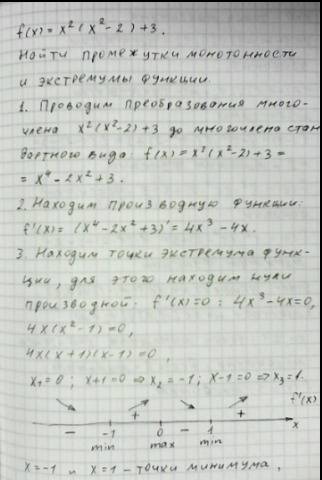 f(x) = x²(x²-2)+3.
Найти промежутки монотонности
и экстремумы функции.
1. Проводим преобразования много-
члена x²(x²-2)+3 до многочлена стан
дартного вида: f(x) = x²(x²-2)+3=
= x⁴-2x²+3.
2. Находим производную функции:
f'(x) = (x⁴-2x²+3)' = 4x³-4x.
3. Находим точки экстремума функ-
ции, для этого находим нули
производной: f'(x)=0: 4x³-4x=0,
4x(x²-1)=0,
4x(x+1)(x-1)=0,
x₁=0; x+1=0 => x₂=-1; x-1=0 => x₃=1.
f'(x)
- -1 + 0 - 1 + x
min max min
x=-1 и x=1 - точки минимума,